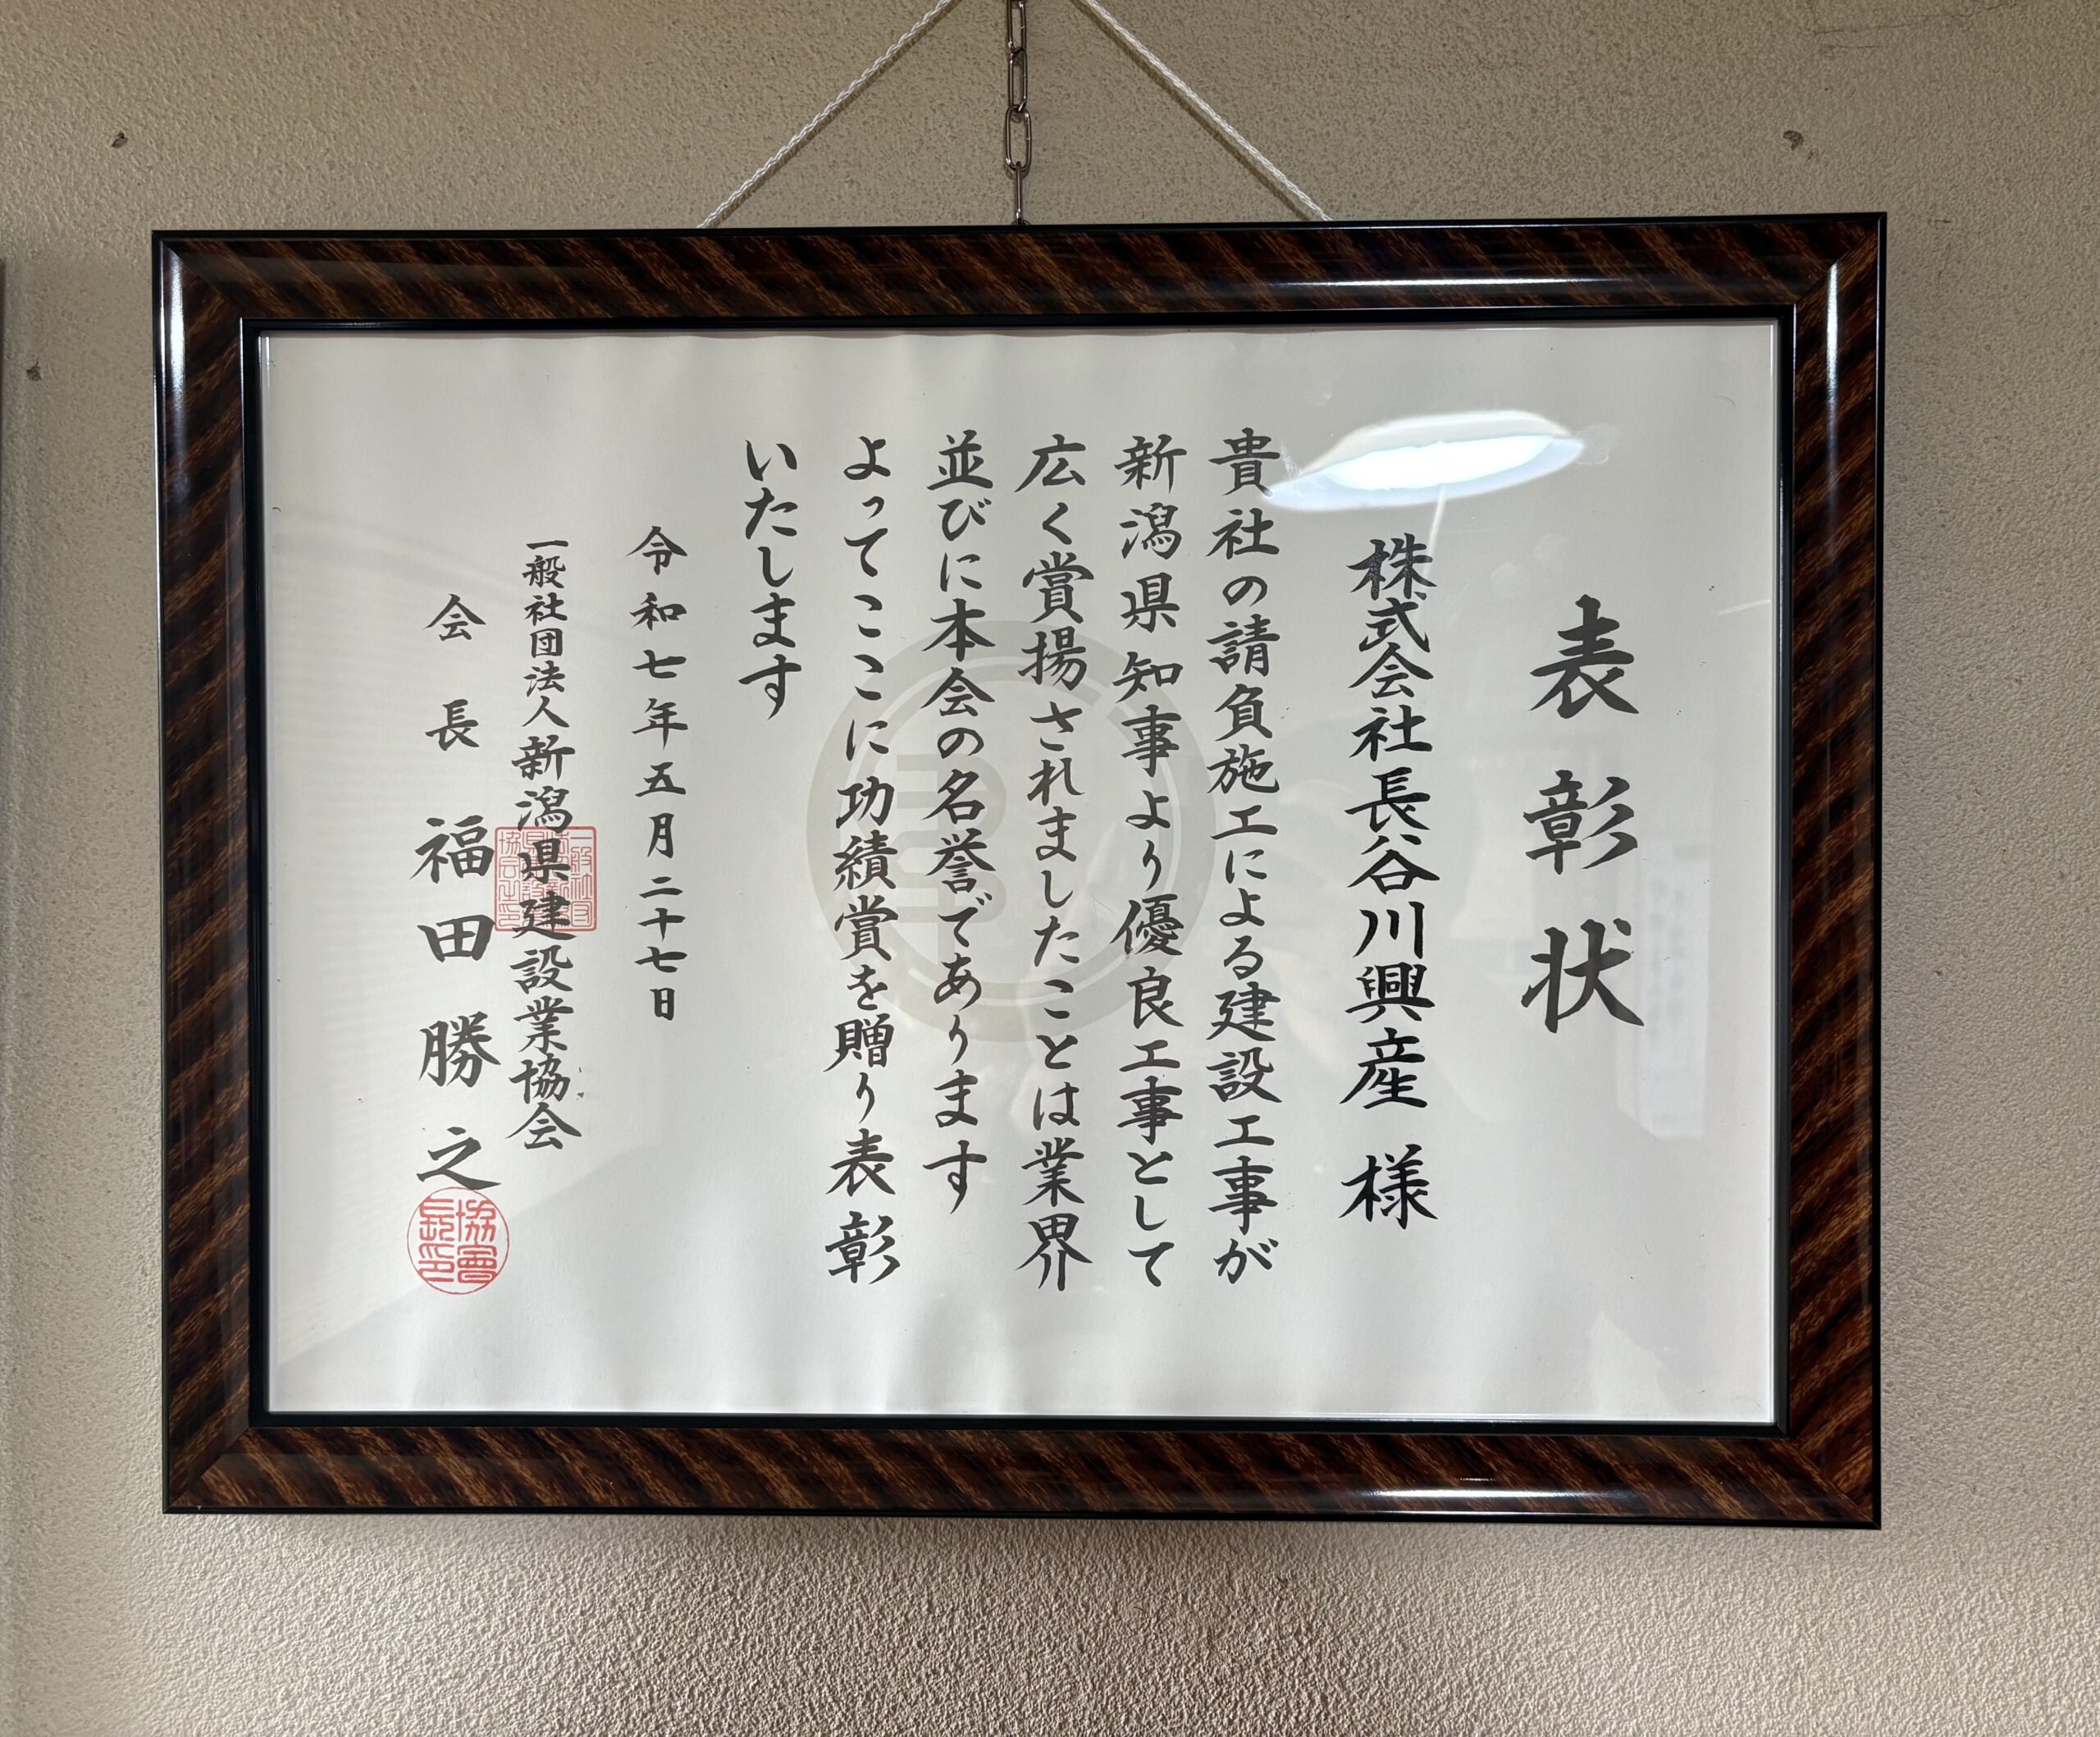 表彰状
株式会社長谷川興産 様
貴社の請負施工による建設工事が
新潟県知事より優良工事として
広く賞揚されましたことは業界
並びに本会の名誉であります
よってここに功績賞を贈り表彰
いたします
令和七年五月二十七日
一般社団法人新潟県建設業協会
会長 福田勝之
協會長印